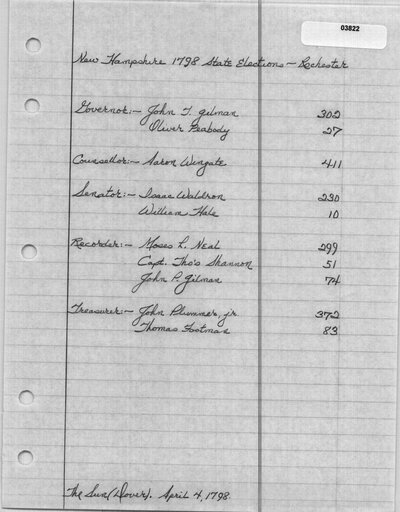 03822
New Hampshire 1798 State Elections - Rochester
Governor:- John T. Gilman 302
Oliver Peabody 27
Counsellor:- Aaron Wingate 411
Senator:- Isaac Waldron 230
William Hale 10
Recorder:- Moses L. Neal 299
Capt. Tho's Shannon 51
John P. Gilman 74
Treasurer:- John Plummer, jr. 372
Thomas Footman 83
The Sun (Dover). April 4, 1798.